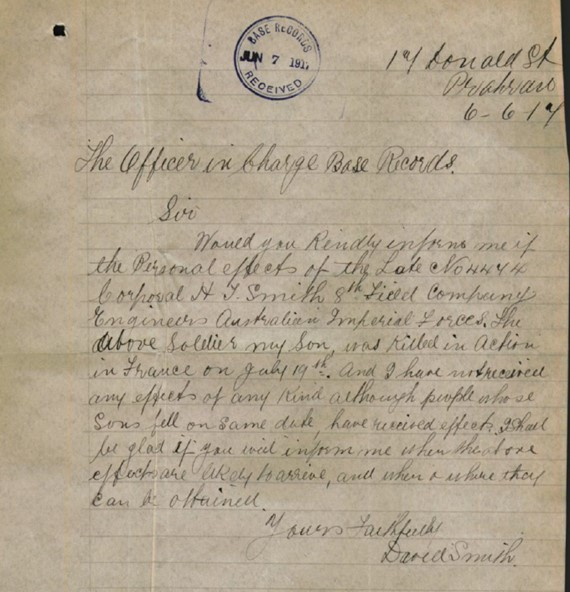 BASE RECORDS
JUN 7 1917
RECEIVED
17 Donald St
Prahran
6-6-17
The Officer in Charge Base Records.
Sir
Would you Kindly inform me if
the Personal effects of the Late No 4474
Corporal H J Smith 8th Field Company
Engineers Australian Imperial Forces. The
above Soldier my Son, was Killed in Action
in France on July 19th. And I have not received
any effects of any Kind although people whose
Sons fell on same date have received effects. I shall
be glad if you will inform me when the above
effects are likely to arrive, and when & where they
can be obtained.
Yours Faithfully
David Smith.